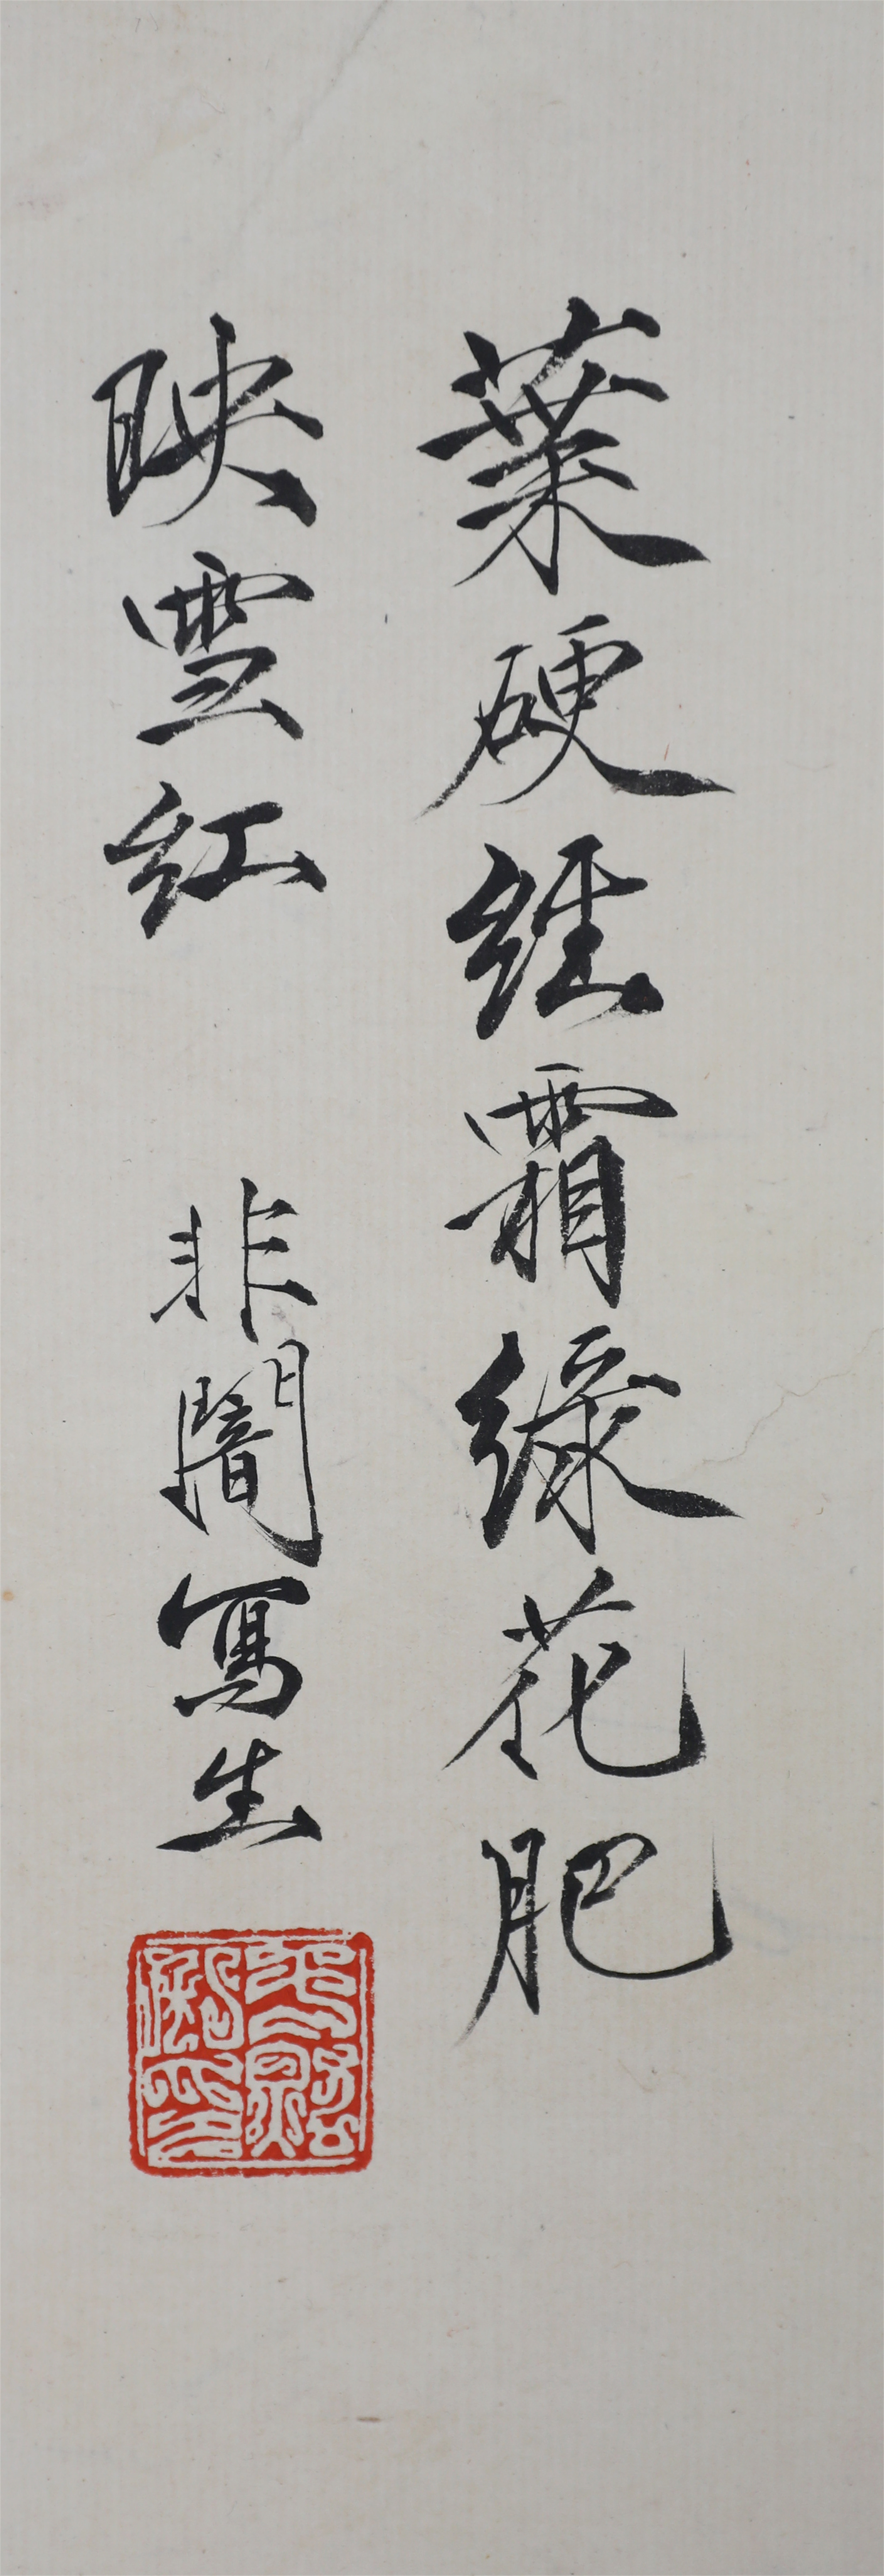 葉硬經霜緑花肥
映雪紅
非闇寫生